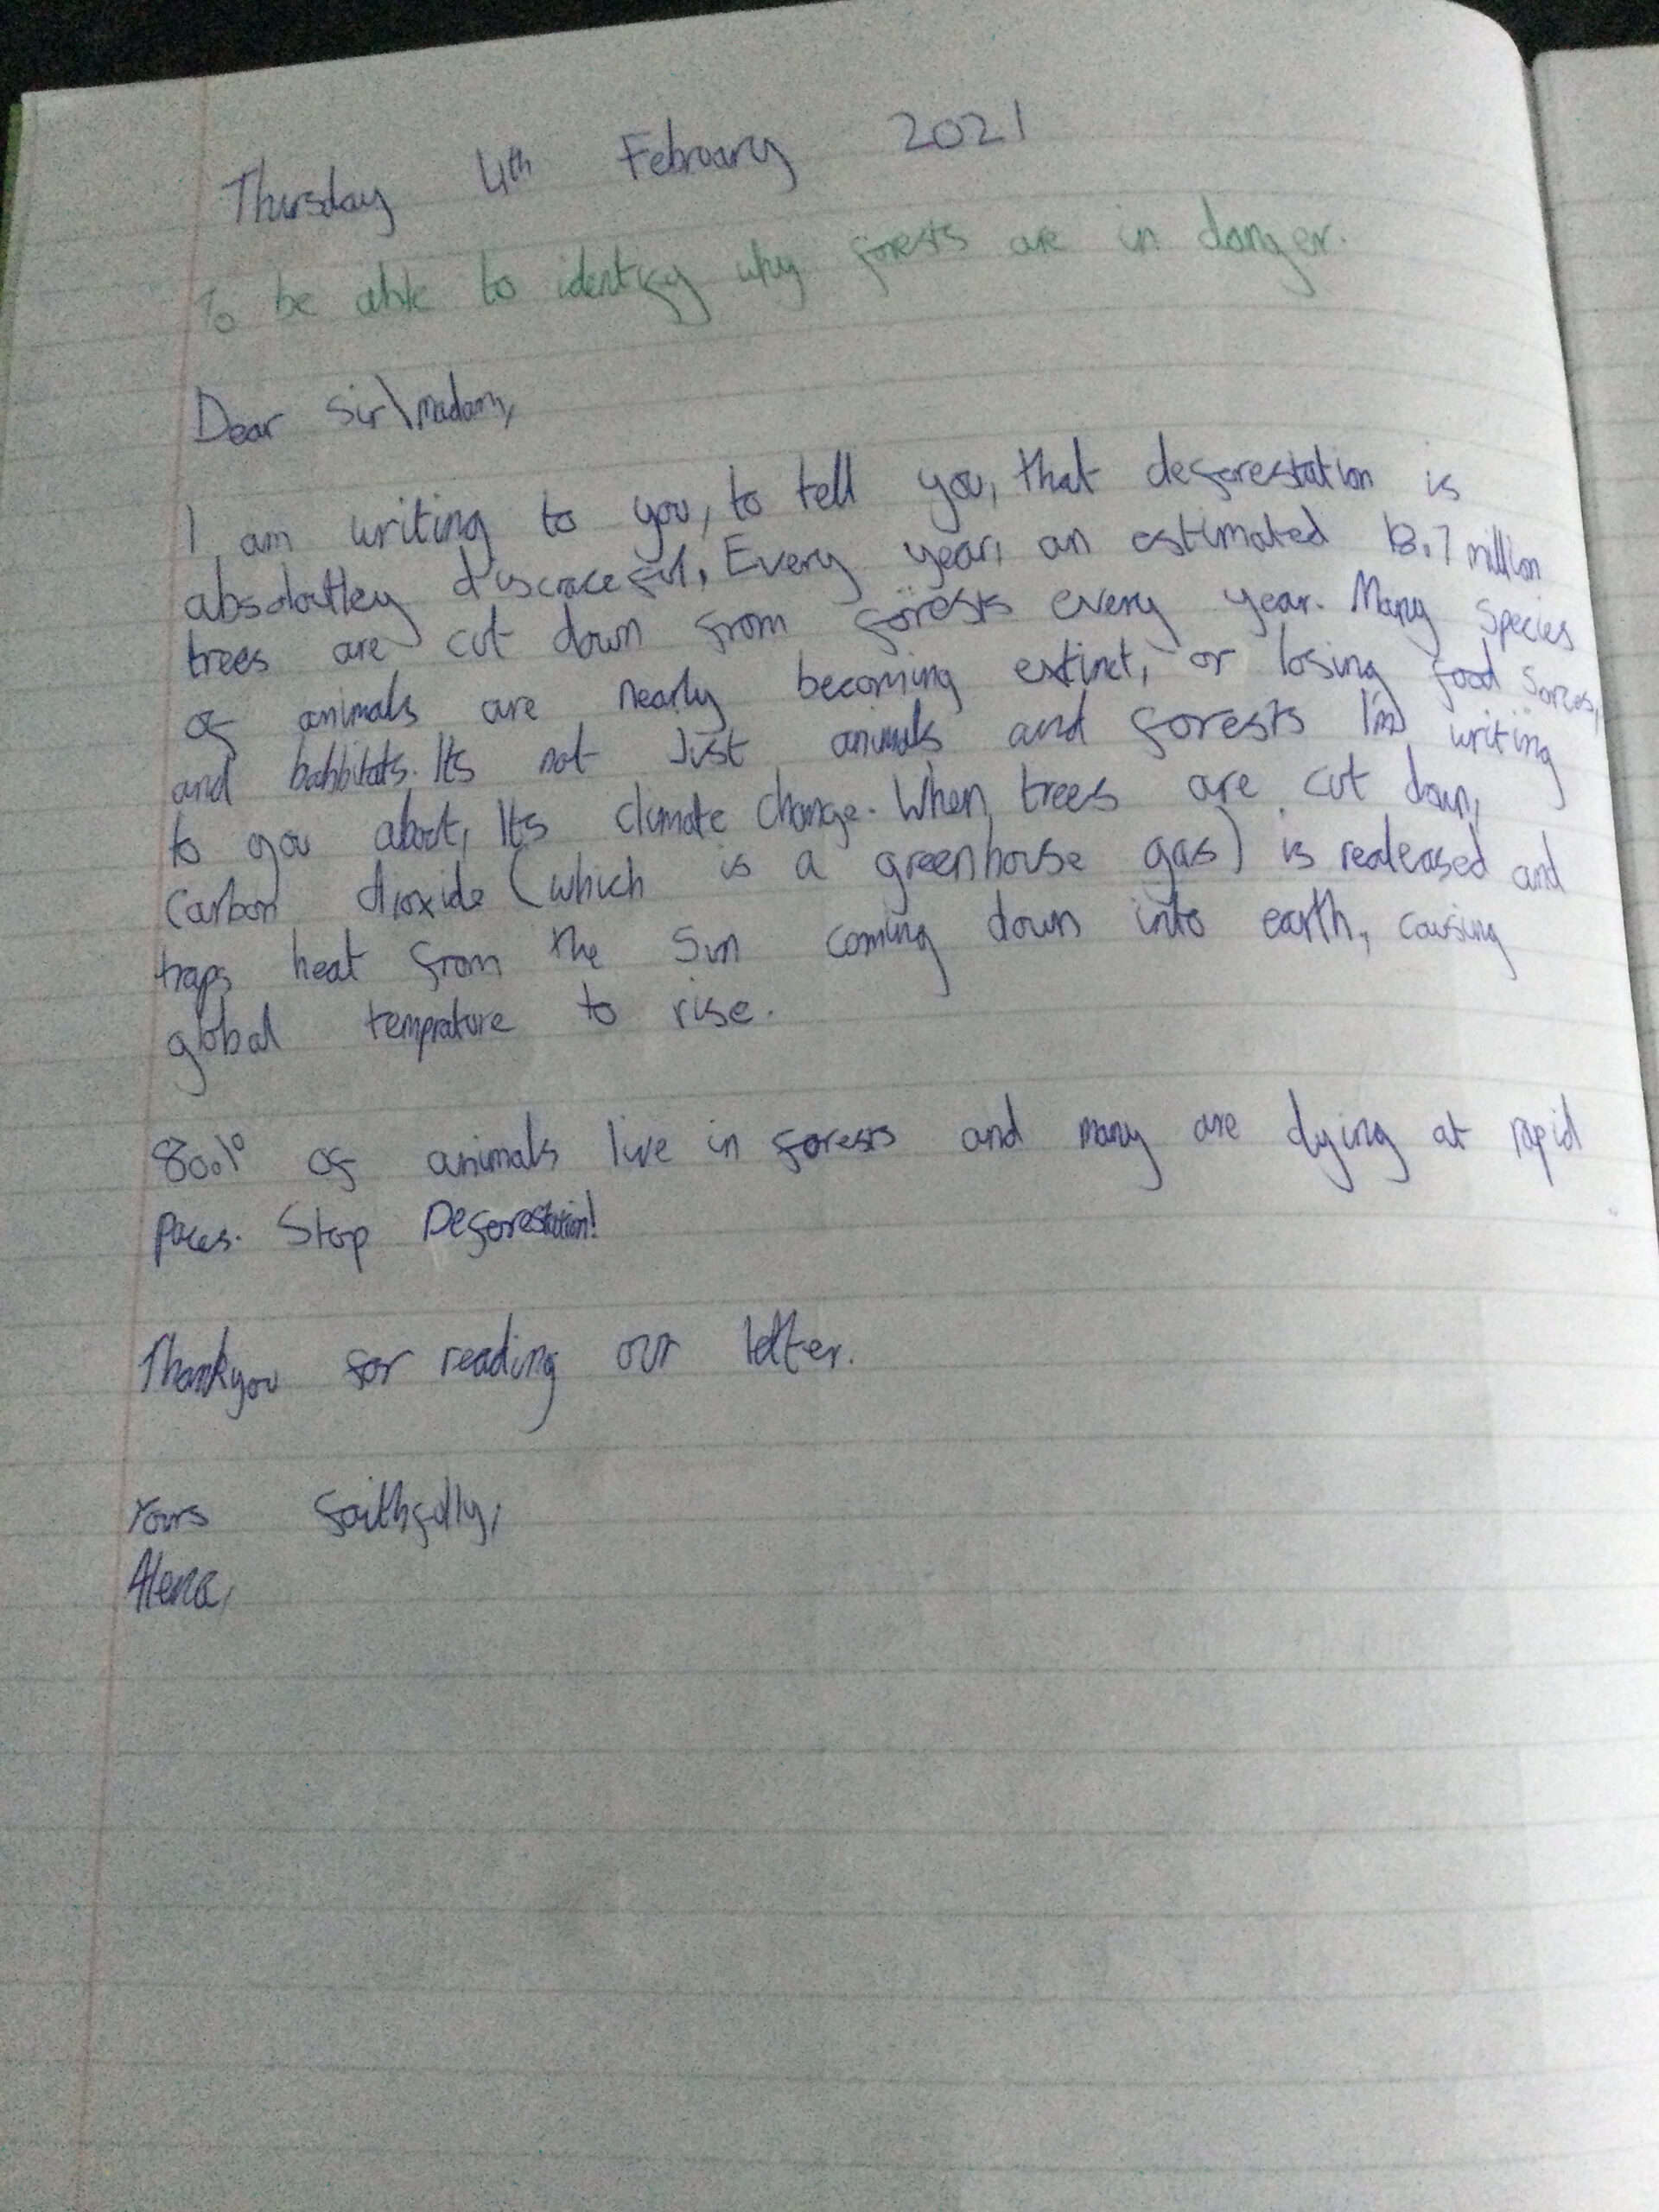 Thursday 4th February 2021
To be able to identify why forests are in danger.
Dear Sir\madam,
I am writing to you, to tell you, that deforestation is
absoloutley discraceful. Every year, an estimated 18.7 million
trees are cut down from forests every year. Many species
of animals are nearly becoming extinct, or losing food sorces,
and habbitats. Its not Just animals and forests I'm writing
to you about, Its climate change. When trees are cut down,
Carbon dioxide (which is a greenhouse gas) is realeased and
traps heat from the Sun coming down into earth, causing
global temprature to rise.
80% of animals live in forests and many are dying at rapid
paces. Stop Deforestation!
Thankyou for reading our letter.
Yours faithfully,
Alena,